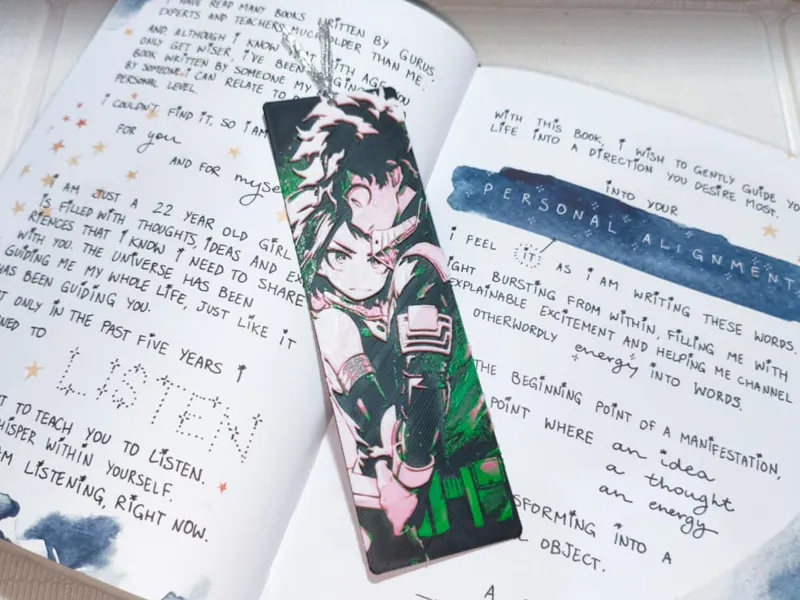 I HAVE READ MANY BOOKS WRITTEN BY GURUS,
EXPERTS AND TEACHERS MUCH OLDER THAN ME.
AND, ALTHOUGH I KNOW WITH AGE YOU
ONLY GET WISER, I'VE BEEN
BOOK WRITTEN BY SOMEONE MY
BY SOMEONE I CAN RELATE TO
PERSONAL LEVEL.
I COULDN'T FIND IT, SO I AM
FOR you
AND FOR myse
I AM JUST A 22 YEAR OLD GIRL
IS FILLED WITH THOUGHTS, IDEAS AND EX
RIENCES THAT I KNOW I NEED TO SHARE
WITH YOU. THE UNIVERSE HAS BEEN
GUIDING ME MY WHOLE LIFE, JUST LIKE IT
HAS BEEN GUIDING YOU.
T ONLY IN THE PAST FIVE YEARS I
NED TO
LISTEN
T TO TEACH YOU TO LISTEN.
HISPER WITHIN YOURSELF.
M LISTENING, RIGHT NOW.
WITH THIS BOOK, I WISH TO GENTLY GUIDE YO
LIFE INTO A DIRECTION YOU DESIRE MOST.
INTO YOUR
PERSONAL ALIGNMENT.
I FEEL IT AS I AM WRITING THESE WORDS.
IGHT BURSTING FROM WITHIN, FILLING ME WITH
EXPLAINABLE EXCITEMENT AND HELPING ME CHANNEL
OTHERWORDLY energy INTO WORDS.
THE BEGINNING POINT OF A MANIFESTATION,
POINT WHERE an idea
a thought
an energy
SFORMING INTO A
OBJECT.
A